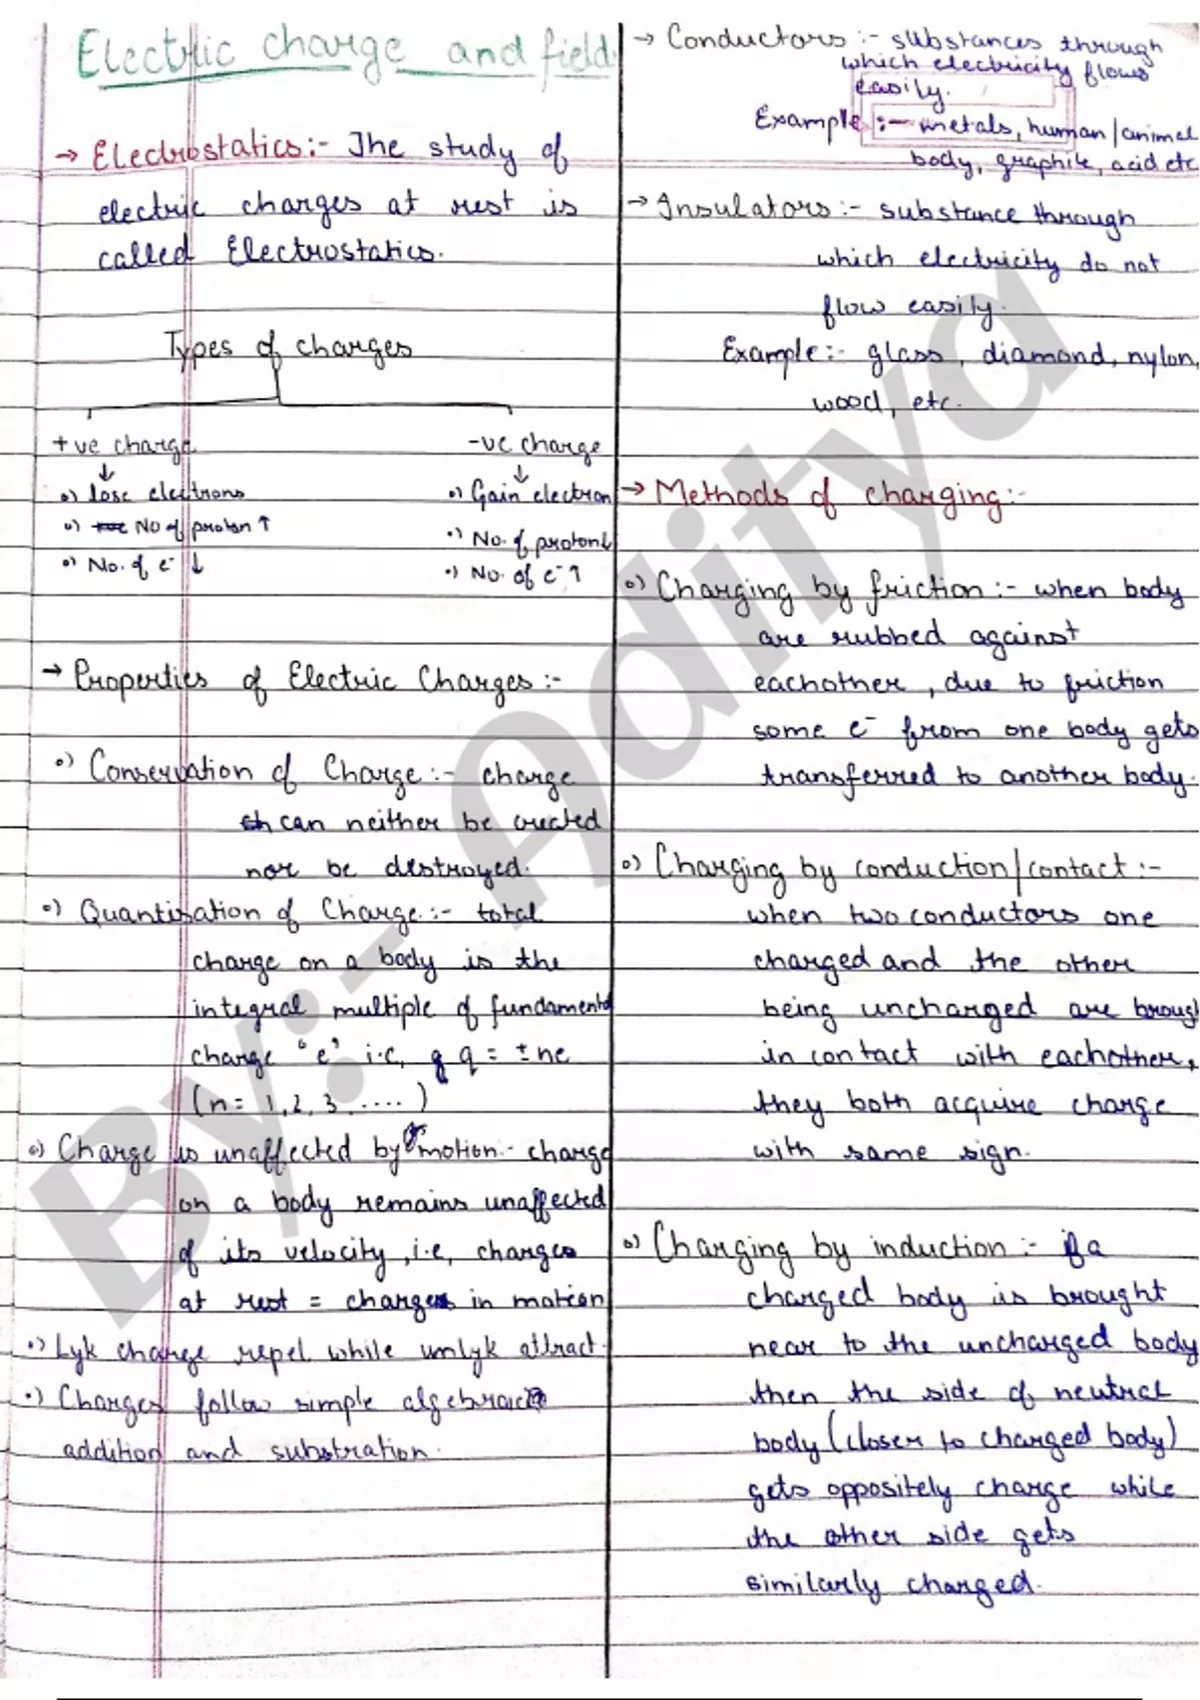 Electric charge and field.
→ Electrostatics:- The study of
electric charges at rest is
called Electrostatics.
Types of charges
+ve charge
↓
•) lose electrons
•) No of proton ↑
•) No. of e⁻ ↓
-ve charge
↓
•) Gain electron
•) No. of proton↓
•) No. of e⁻↑
→ Properties of Electric Charges:-
•) Conservation of Charge:- charge
can neither be created
nor be destroyed.
•) Quantization of Charge:- total
charge on a body is the
integral multiple of fundamental
charge 'e' i.e, q = ±ne
(n= 1,2,3.....)
•) Charge is unaffected by motion:- charge
on a body remains unaffected
of its velocity, i.e, charges
at rest = charges in motion
•) Lyk charge repel while unlyk attract.
•) Charges follow simple algebraic
addition and substration.
→ Conductors:- substances through
which electricity flows
easily.
Example :- metals, human/animal
body, graphite, acid etc
→ Insulators:- substance through
which electricity do not
flow easily.
Example:- glass, diamond, nylon,
wood, etc.
→ Methods of charging:-
•) Charging by friction:- when body
are rubbed against
eachother, due to friction
some e⁻ from one body gets
transferred to another body.
•) Charging by conduction/contact:-
when two conductors one
charged and the other
being uncharged are brough
in contact with eachother,
they both acquire charge
with same sign.
•) Charging by induction:- if a
charged body is brought
near to the uncharged body
then the side of neutral
body (closer to charged body)
gets oppositely charge while
the other side gets
similarly charged.
By:- Aditya